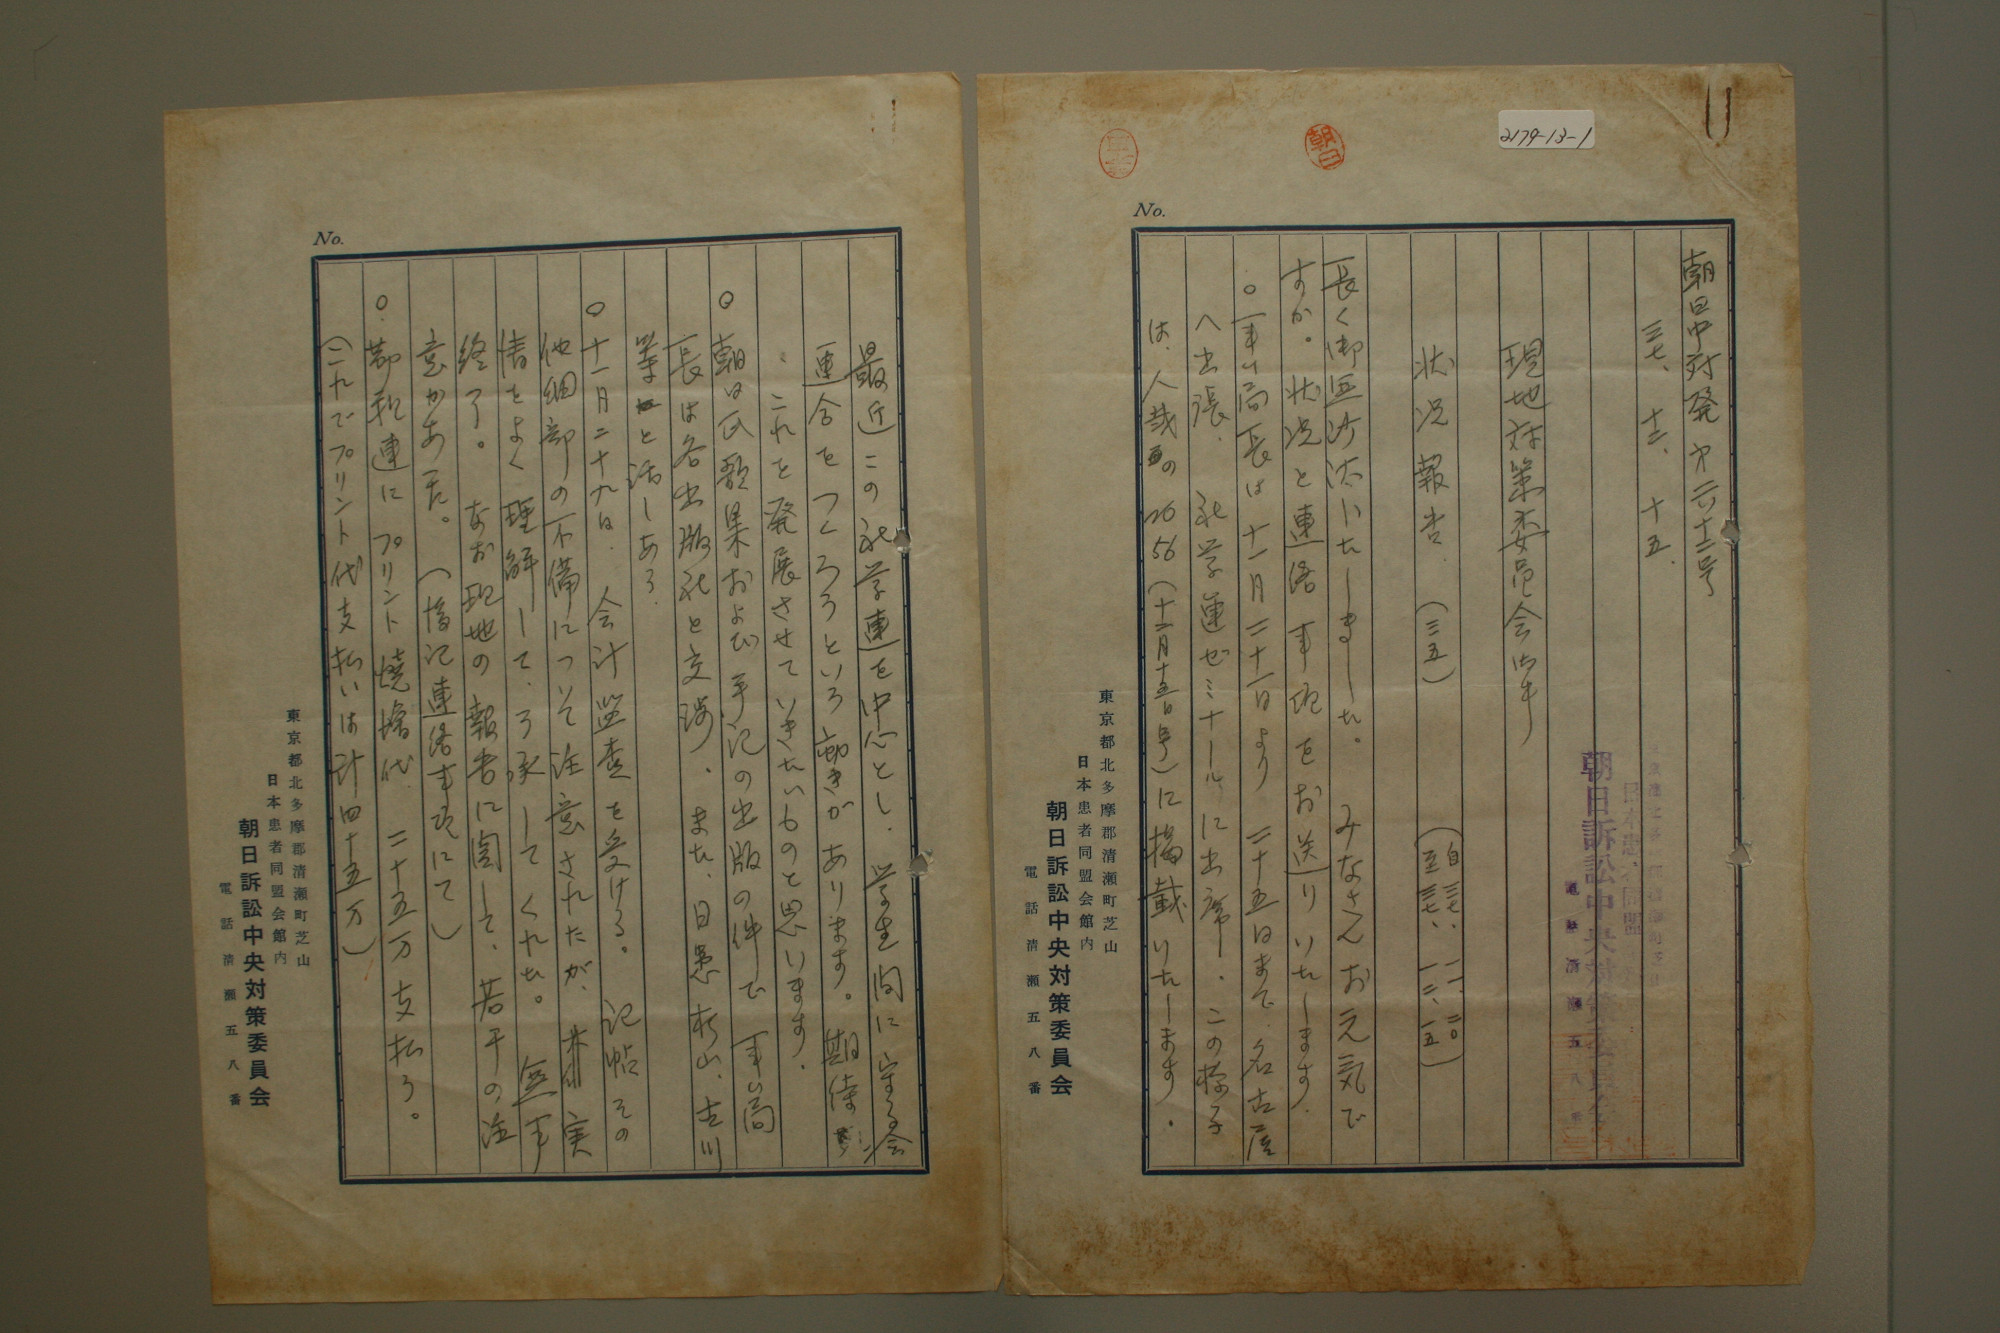 2179-13-1
朝日
No.
朝日中対発第六十二号
三七、十二、十五.
現地対策委員会御中
朝日訴訟中央対策委員会
状況報告.（三五）（自 三七、一一、二〇 至 三七、一二、一五）
長く御無沙汰いたしました。みなさんお元気で
すか。状況と連絡事項をお送りいたします.
○事ム局長は十一月二十一日より二十五日まで、名古屋
へ出張、社学連ゼミナールに出席.この様子
は、人裁の26 56（十二月十五日号）に掲載いたします.
東京都北多摩郡清瀬町芝山
日本患者同盟会館内
朝日訴訟中央対策委員会
電話清瀬五八番
No.
最近この社学連を中心とし、学生間に守る会
連合をつくろうという動きがあります。期待
これを発展させていきたいものと思います.
○朝日氏歌集および手記の出版の件で事ム局
長は各出版社と交渉、また、日患杉山、古川
等と話しあう.
○十一月二十九日.会計監査を受ける。記帖その
他細部の不備について注意されたが、実
情をよく理解して、了承してくれた。無事
終了。なお現地の報告に関して、若干の注
意があった。（後記連絡事項にて）
○都社連にプリント焼増代.二十五万支払う。
（これでプリント代支払いは計四十五万）
東京都北多摩郡清瀬町芝山
日本患者同盟会館内
朝日訴訟中央対策委員会
電話清瀬五八番